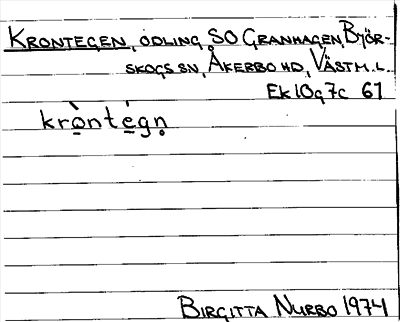 KRONTEGEN, ODLING SO GRANHAGEN, BJÖR-
SKOGS SN, ÅKERBO HD, VÄSTM. L.
Ek 10g7c 61
krò̠nté̠gṇ
BIRGITTA NURBO 1974